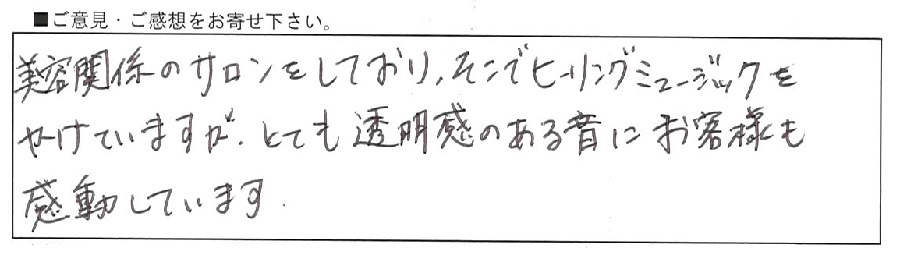 ■ご意見・ご感想をお寄せ下さい。
美容関係のサロンをしており、そこでヒーリングミュージックを
かけていますが、とても透明感のある音にお客様も
感動しています.